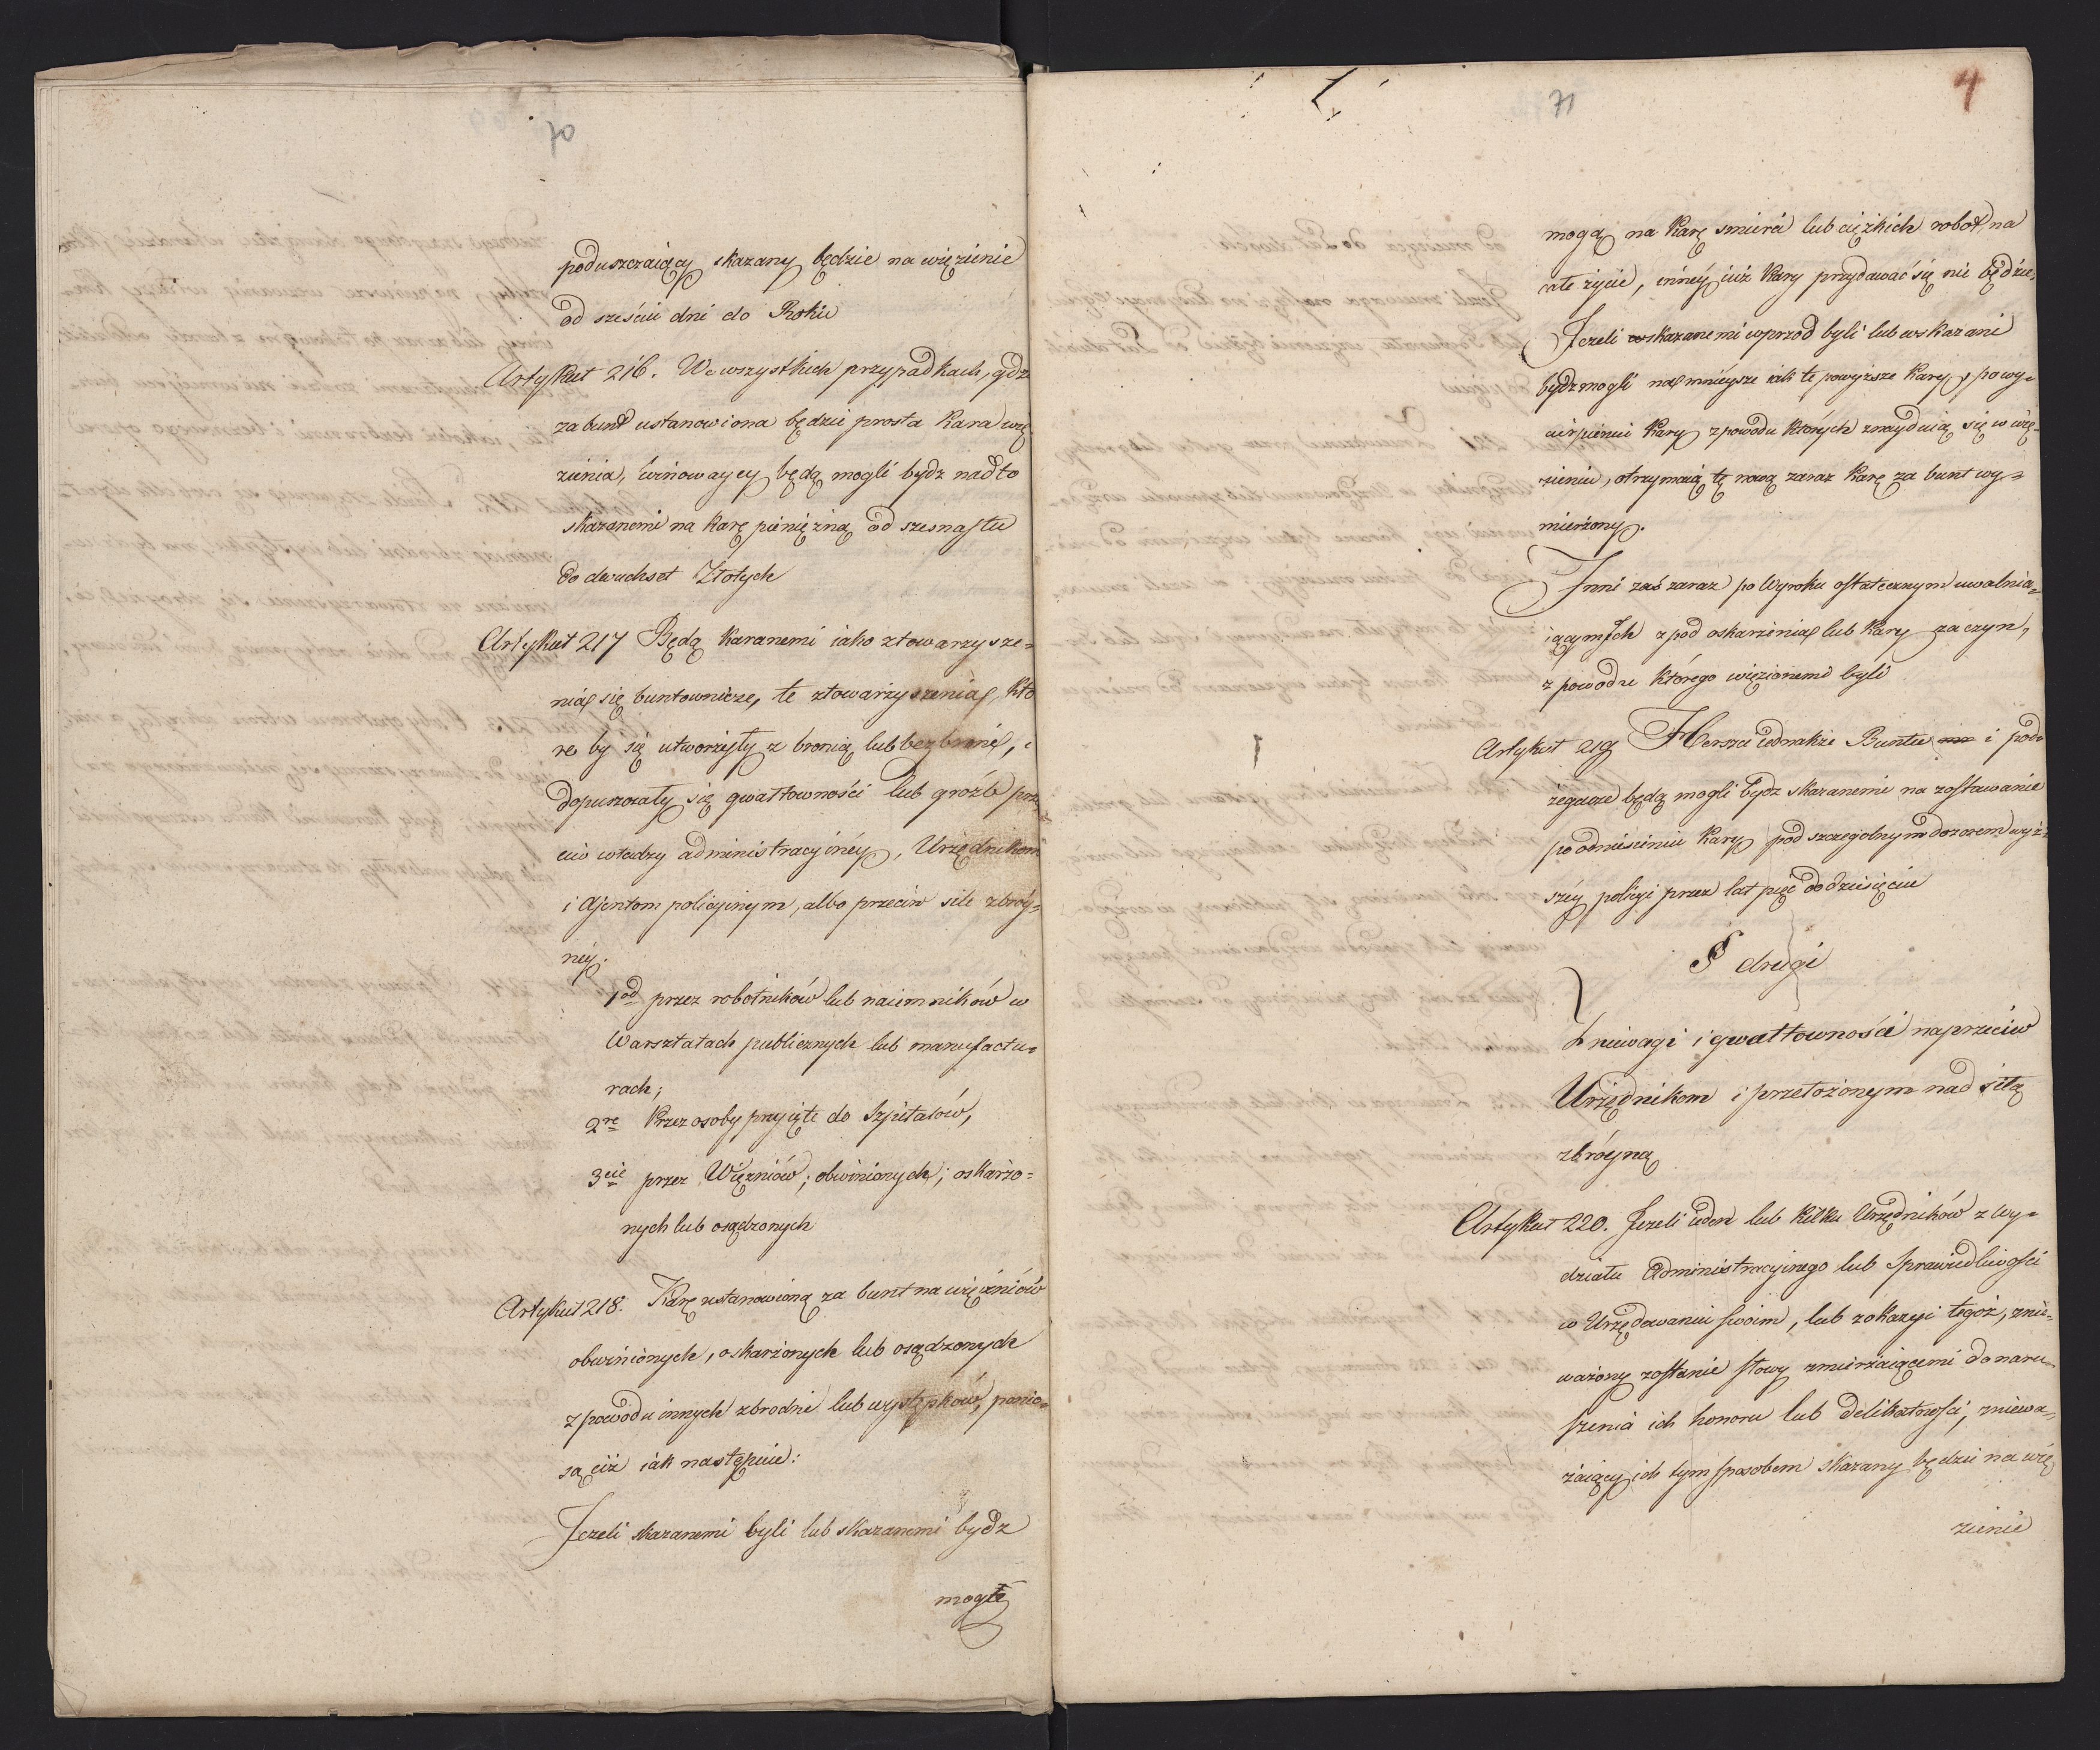 70
poduszczaiący skazany będzie na więzienie
od sześciu dni do Roku
Artykuł 216. We wszystkich przypadkach, gdz
za bunt ustanowiona będzie prosta Kara wię
zienia, winowaycy będą mogli bydz nadto
skazanemi na karę pieniężną od szesnastu
do dwuchset Złotych
Artykuł 217 Będą Karanemi iako ztowarzysze=
nia się buntownicze, te ztowarzyszenia, któ
re by się utworzyły z bronią lub bez broni, i
dopuszczały się gwałtowności lub groźb prze
ciw władzy administracyinéy, Urzędnikom
i Ajentom policyinym, albo przeciw sile zbróy=
néy.
1od przez robotników lub naiemników w
Warsztatach publicznych lub manufactu=
rach;
2re Przez osoby przyięte do Szpitalów,
3cie przez Więzniów; obwinionych; oskarżo=
nych lub osądzonych
Artykuł 218. Karę ustanowioną za bunt na więźniów
obwinionych, oskarżonych lub osądzonych
z powodu innych zbrodni lub występków, ponio=
są ciż iak następuie:
Jeżeli skazanemi byli lub skazanemi bydz
mogli
71
4
mogą na Karę smierci lub ciężkich robot na
całe życie, innéy iuż Kary przydawać się nie będzie,
Jeżeli wskazanemi wprzód byli lub wskazani
bydz mogli na mnieysze iak te powyższe Kary, po wy=
cierpieniu Kary z powodu których znayduią się w wię=
zieniu, otrzymaią tę nową zaraz Karę za bunt wy=
mierzony.
Inni zaś zaraz po Wyroku ostatecznym uwalnia=
iącym Ich z pod oskarżenia lub Kary za czyn,
z powodu którego więzionemi byli
Artykuł 219 Herszci iednakże Buntu i pod=
żegacze będą mogli bydz skazanemi na zostawanie
po odniesieniu Kary pod szczegolnym dozorem wyż=
széy policyi przez lat pięć do dziesięciu
§ drugi
Zniewagi i gwałtowności naprzeciw
Urzędnikom i przełożonym nad siłą
zbróyną
Artykuł 220. Jeżeli ieden lub Kilku Urzędników z Wy=
działu Administracyinego lub Sprawiedliwości
w Urzędowaniu swoim, lub z okazyi tegoż, znie=
ważony zostanie słowy zmierzaiącemi do naru=
szenia ich honoru lub delikatności, zniewa=
żaiący ich tym sposobem skazany będzie na wię
zienie